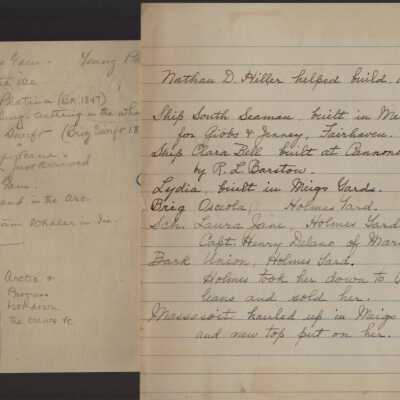 Gam. Young
Platina (Br. 1847)
cutting in the wha
Swift (Brig Swift 18
Just arrived
Gam.
and in the arc
Whaler in
Arctic &
Progress
the
Nathan D. Hiller helped build
Ship South Seaman, built in Me
for Gibbs & Jenney, Fairhaven.
Ship Clara Bell built at Cannons
by R. L. Barstow.
Lydia, built in Meigs Yards.
Brig Osceola Holmes Yard.
Sch. Laura Jane, Holmes Yard
Capt. Henry Delano of Mar
Bark Union, Holmes Yard.
Holmes took her down to
leans and sold her.
Massasoit hauled up in Meigs
and new top put on her.